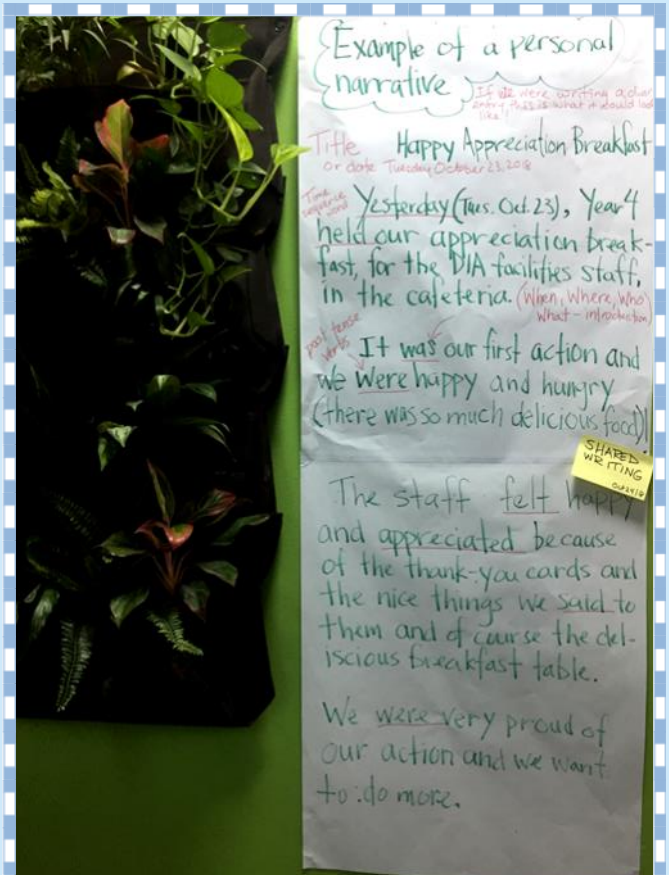 Example of a personal
narrative
If we were writing a diary
entry, this is what it would look
like
Title Happy Appreciation Breakfast
or date Tuesday October 23, 2018
Time
sequence
word
Yesterday (Tues. Oct. 23), Year 4
held our appreciation break-
fast, for the DIA facilities staff,
in the cafeteria. (When, Where, Who)
What - introduction)
past tense
verbs
It was our first action and
we were happy and hungry
(there was so much delicious food)!
SHARED
WRITING
The staff felt happy
and appreciated because
of the thank-you cards and
the nice things we said to
them and of course the del-
iscious breakfast table.
We were very proud of
our action and we want
to do more.